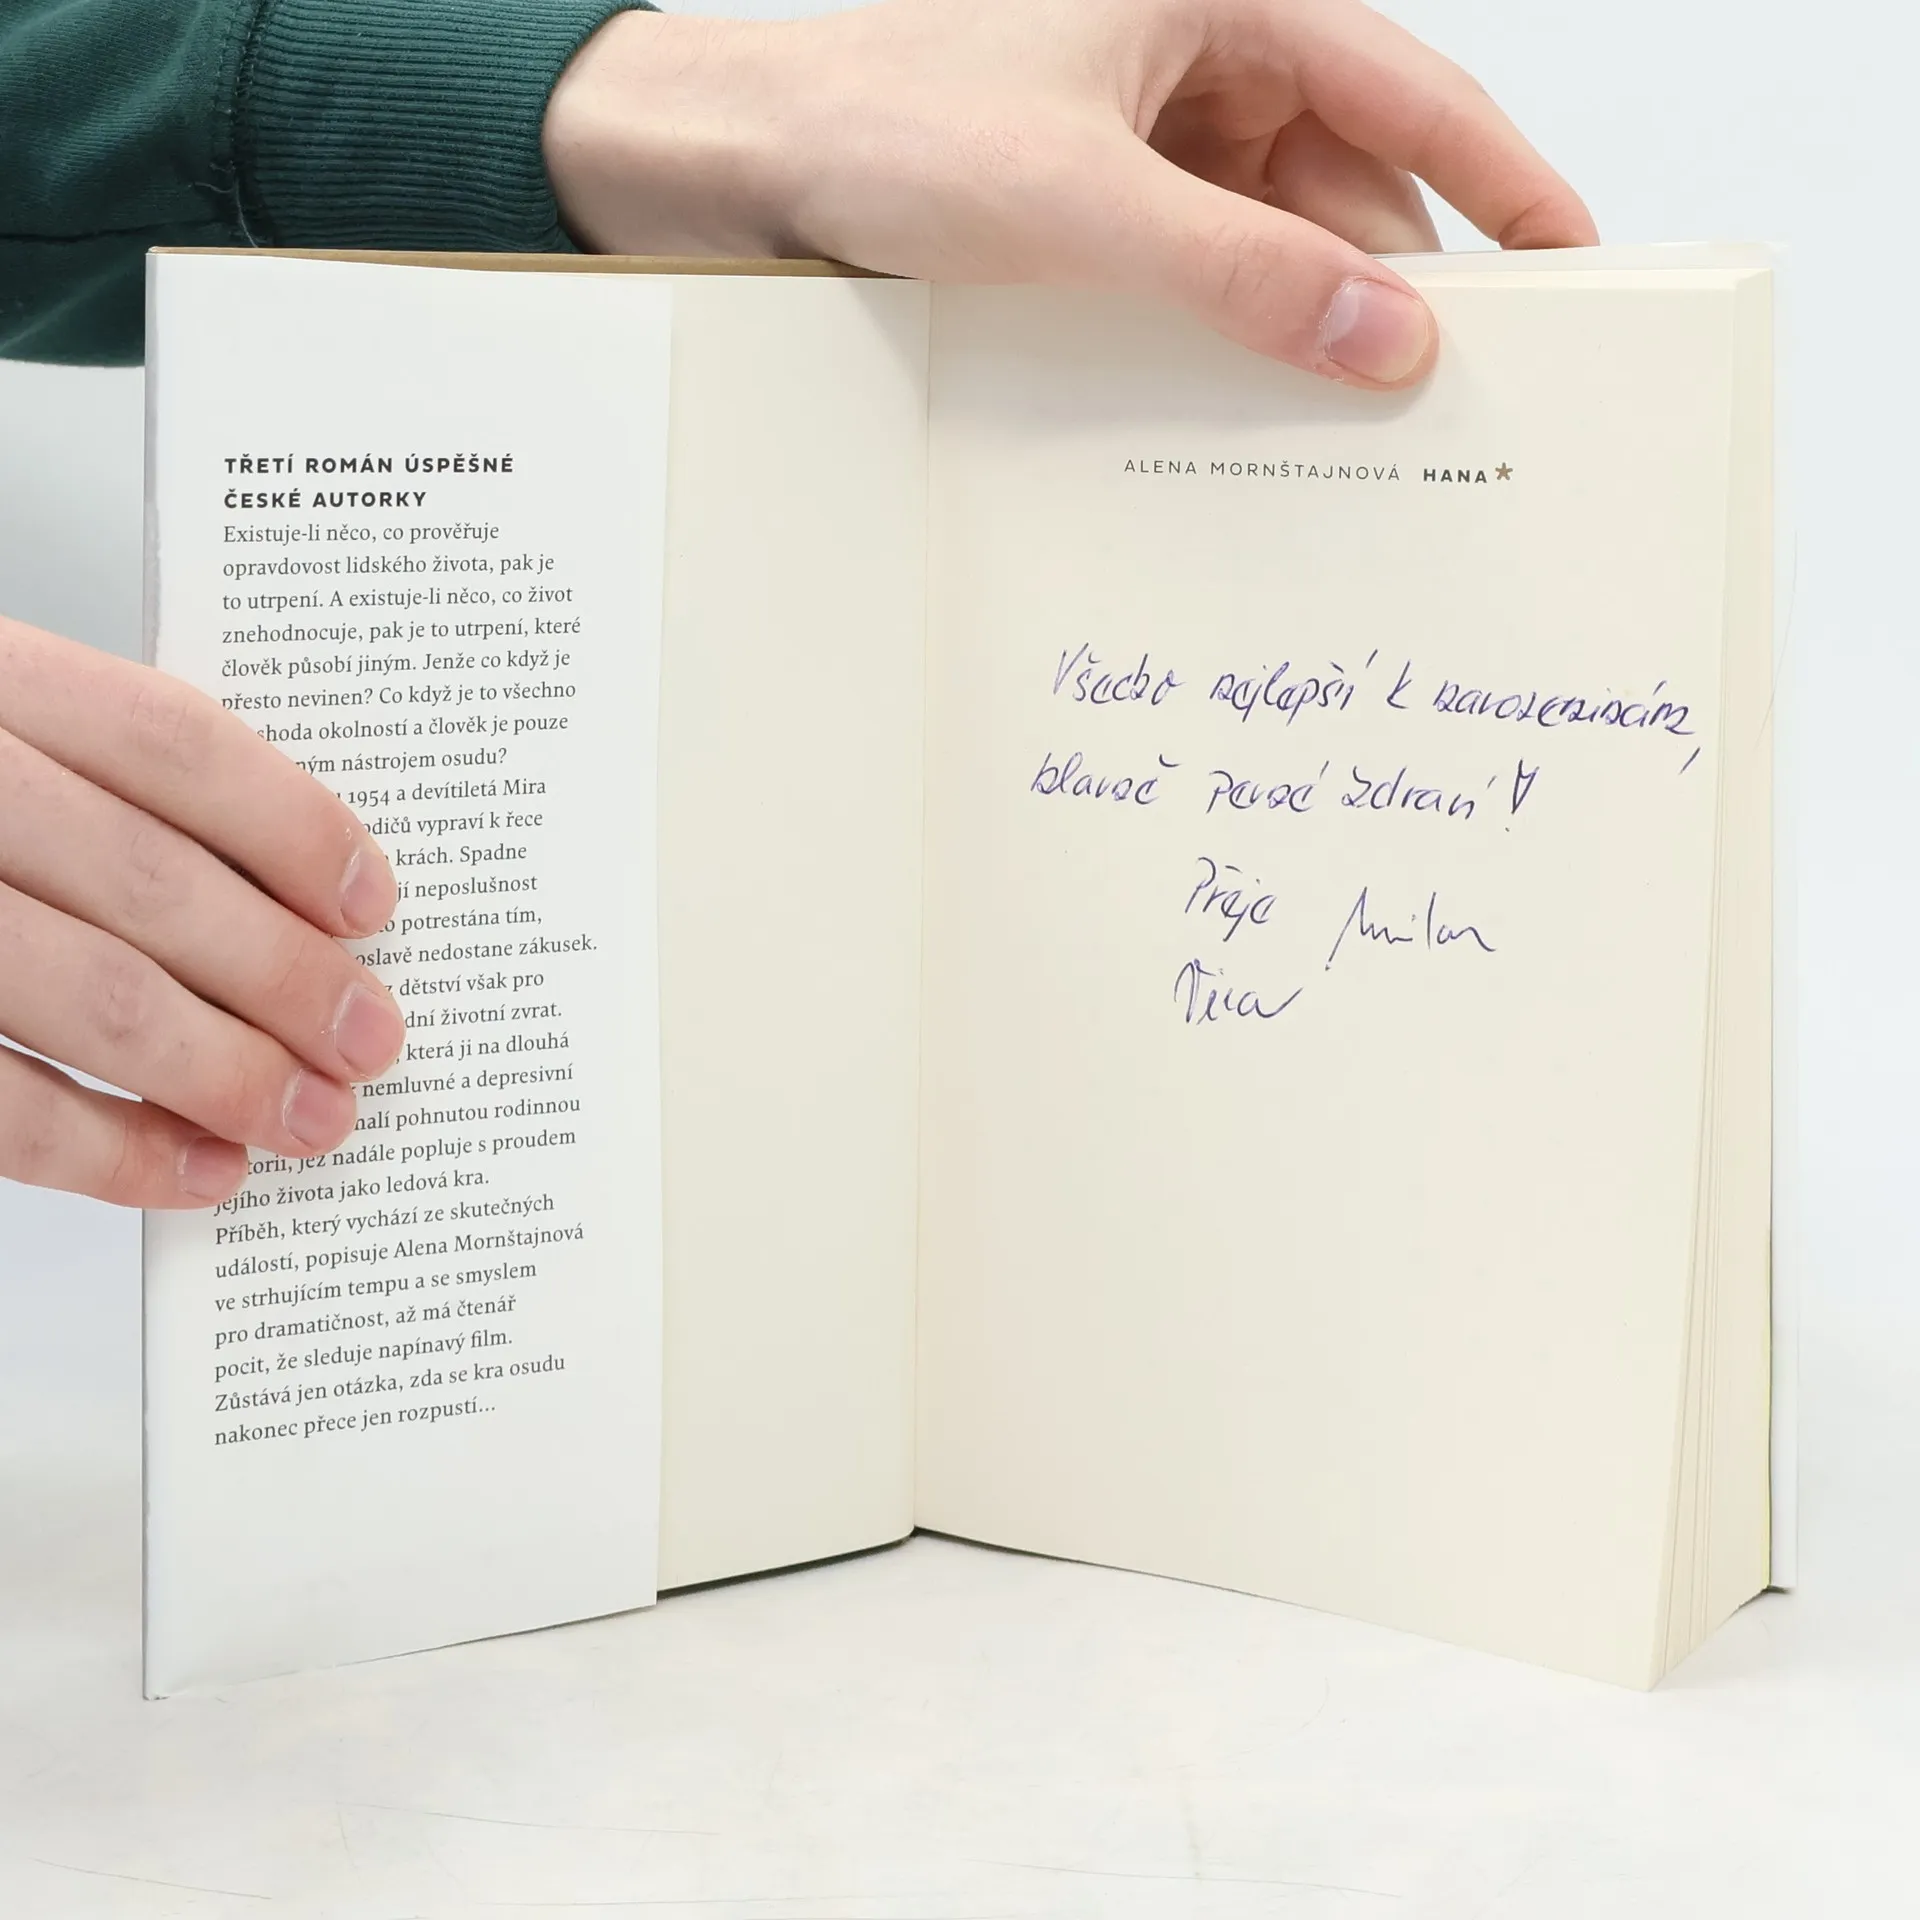 TŘETÍ ROMÁN ÚSPĚŠNÉ
ČESKÉ AUTORKY
Existuje-li něco, co prověřuje
opravdovost lidského života, pak je
to utrpení. A existuje-li něco, co život
znehodnocuje, pak je to utrpení, které
člověk působí jiným. Jenže co když je
přesto nevinen? Co když je to všechno
shoda okolností a člověk je pouze
ným nástrojem osudu?
1954 a devítiletá Mira
odičů vypraví k řece
krách. Spadne
jí neposlušnost
potrestána tím,
oslavě nedostane zákusek.
z dětství však pro
dní životní zvrat.
, která ji na dlouhá
nemluvné a depresivní
halí pohnutou rodinnou
torii, jež nadále popluje s proudem
jejího života jako ledová kra.
Příběh, který vychází ze skutečných
událostí, popisuje Alena Mornštajnová
ve strhujícím tempu a se smyslem
pro dramatičnost, až má čtenář
pocit, že sleduje napínavý film.
Zůstává jen otázka, zda se kra osudu
nakonec přece jen rozpustí...
ALENA MORNŠTAJNOVÁ HANA*
Všechno nejlepší k narozeninám,
hlavně pevné zdraví!
Přeje Milan
Věra